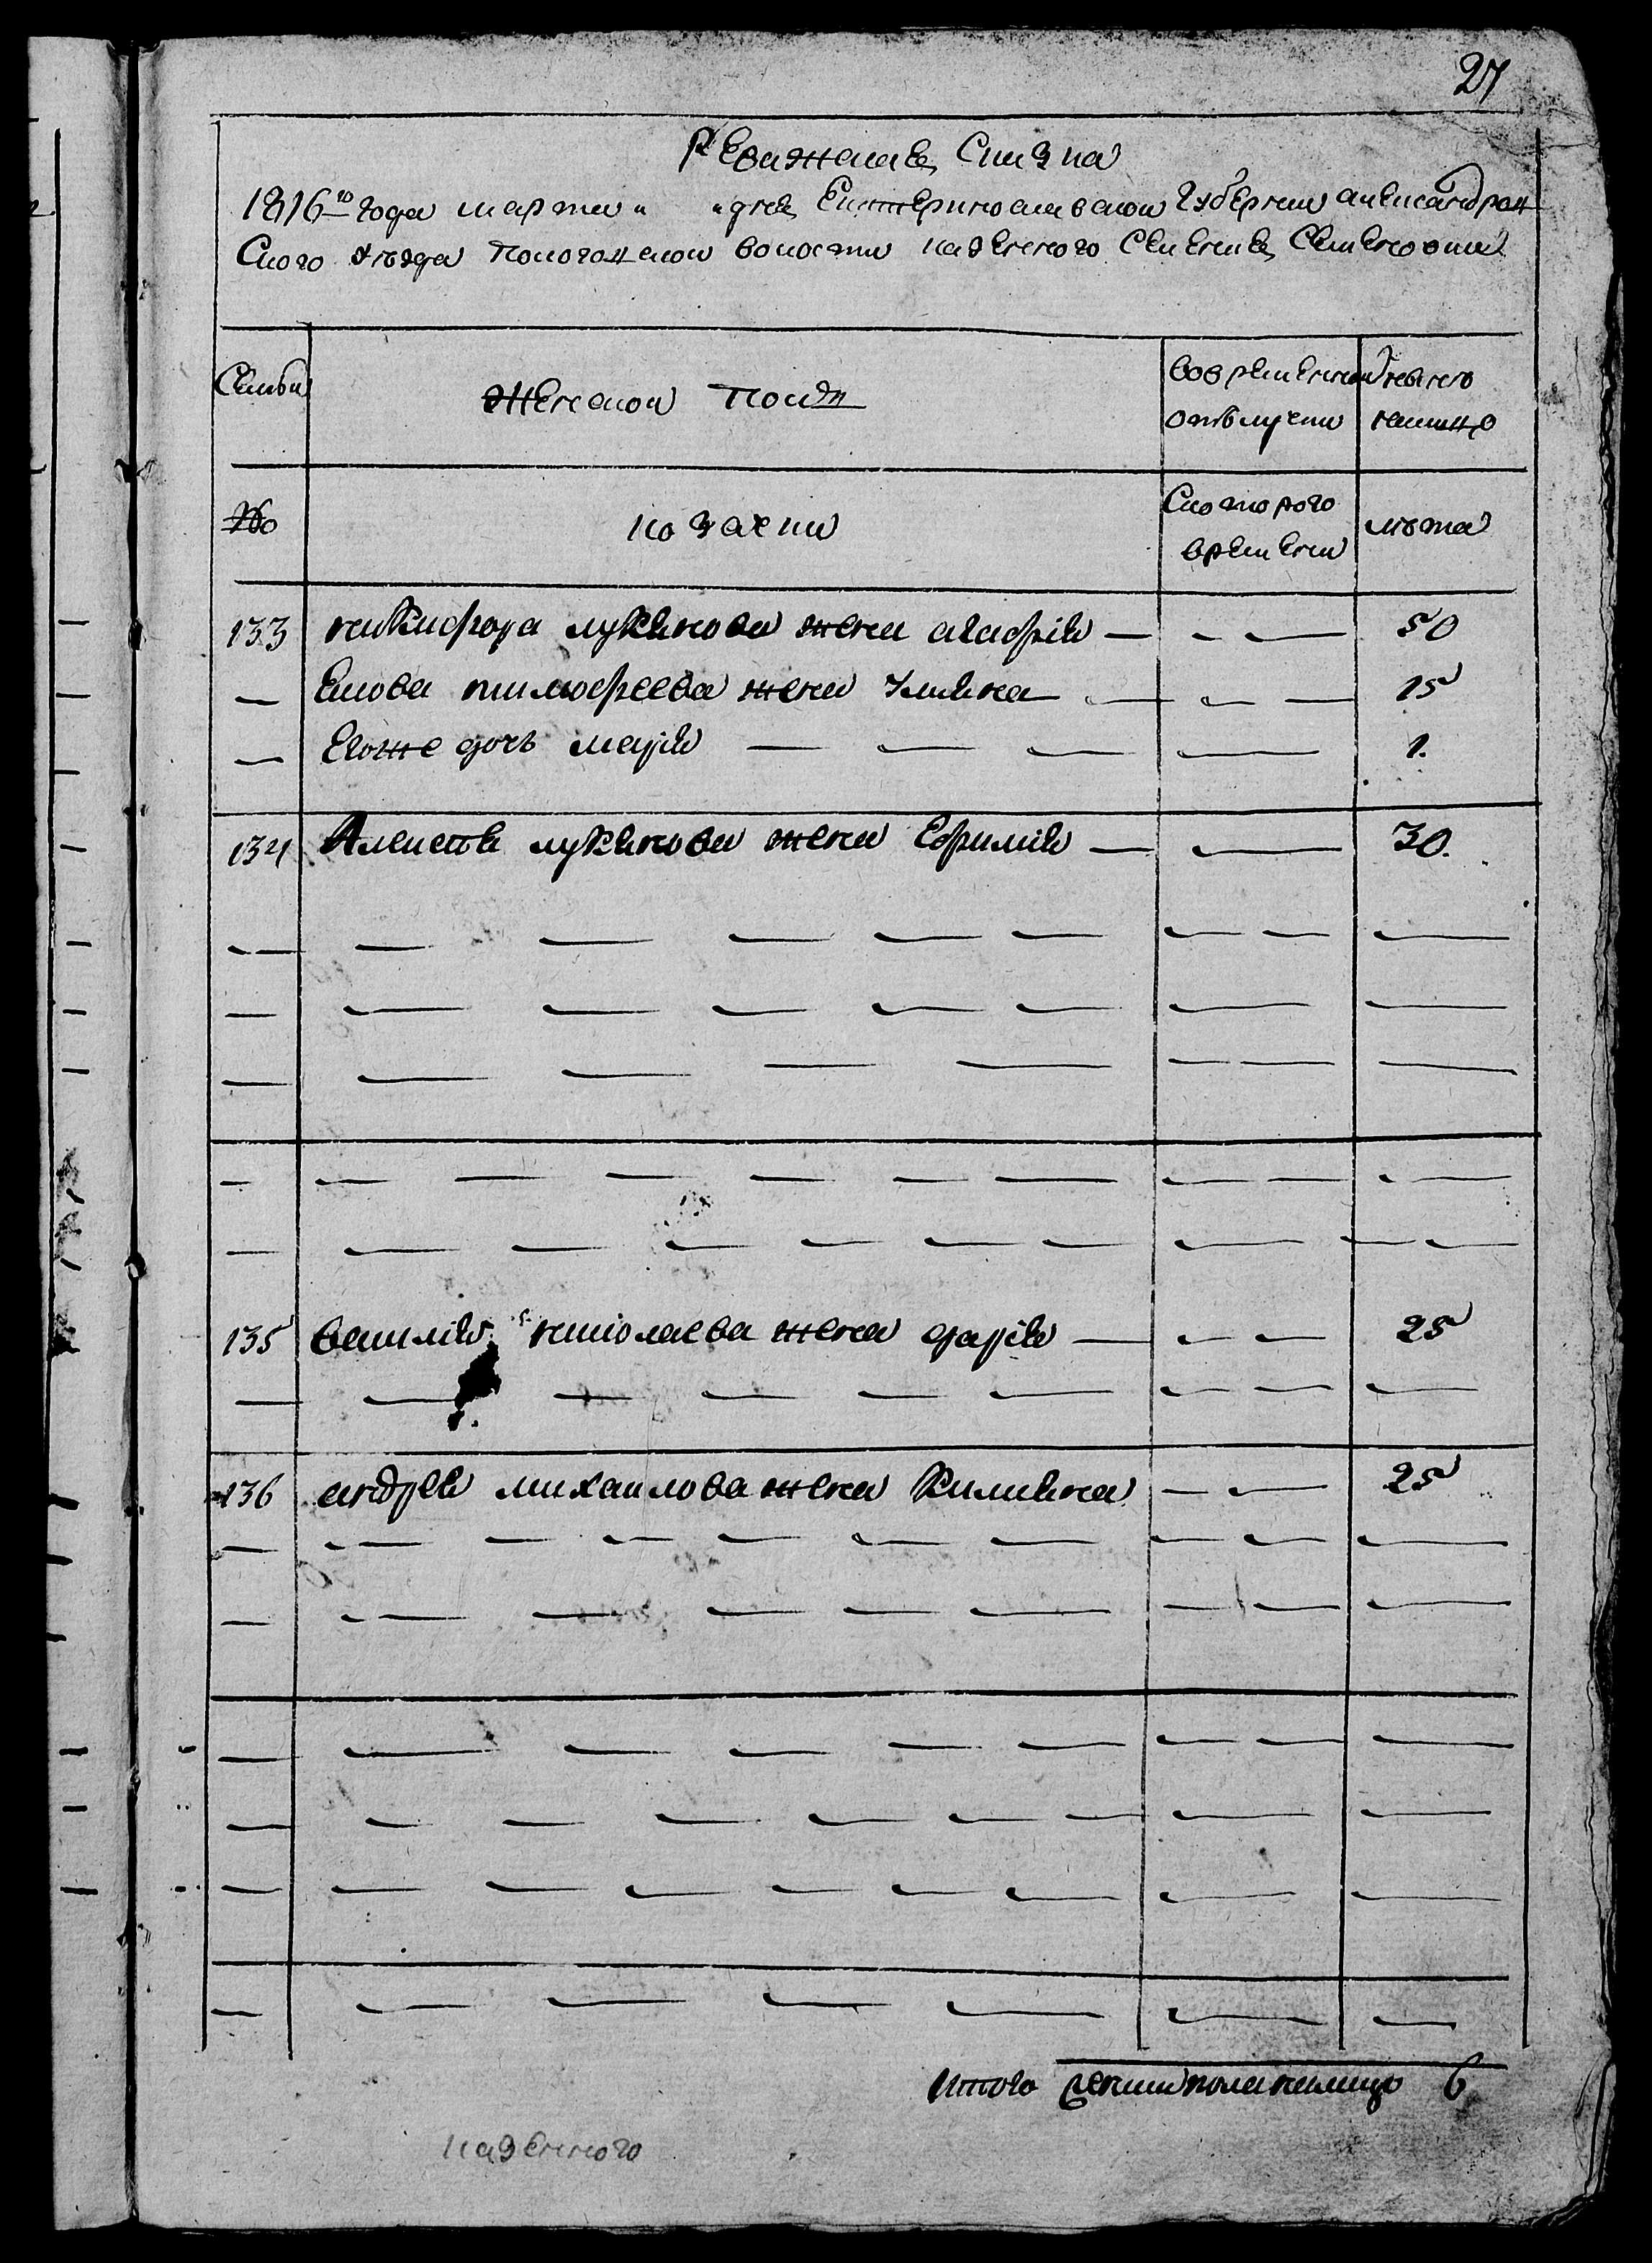 27
Ревижская Сказка
1816го года марта „ „ дня Екатеринославской губернии александров
Скаго уезда Пологовской волости казенного Селения Семеновки
Семьи Женской Полъ вовременной отълучки Ныне налицо
№ козачки Скоторого времени лета
133 никифора лукянова жена агафия — — — 50
— Якова тимофеева жена Улияна — — — 15
— Егоже дочь мария — — — — 1.
134 Алексея лукянова жена Ефимия — — 30.
135 василия николаева жена дария — — — 25
136 андрея михаилова жена Килияна — — 25
Итого женска пола налицо 6
казенного